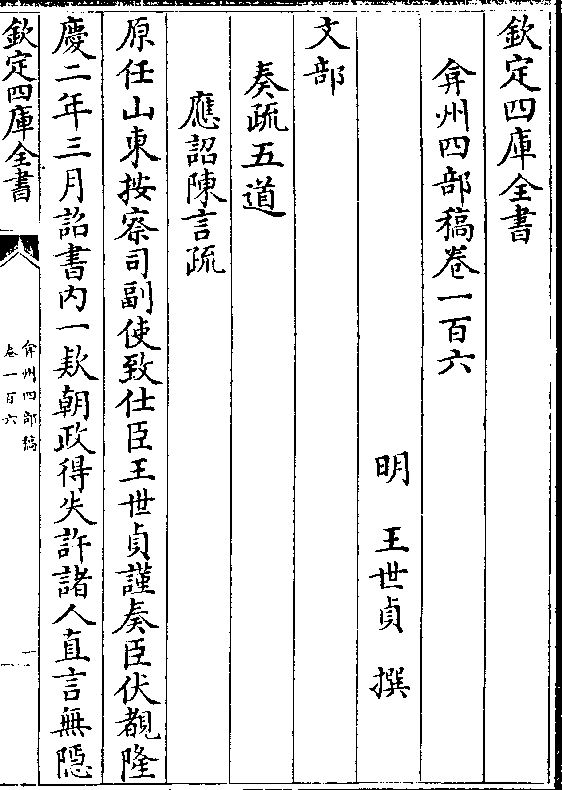 欽定四庫全書
弇州四部稿卷一百六
明　王世貞　撰
文部
奏疏五道
應詔陳言疏
原任山東按察司副使致仕臣王世貞謹奏臣伏覩隆
慶二年三月詔書内一欵朝政得失許諸人直言無隠
欽定四庫全書
弇州四部稿
卷一百六
一